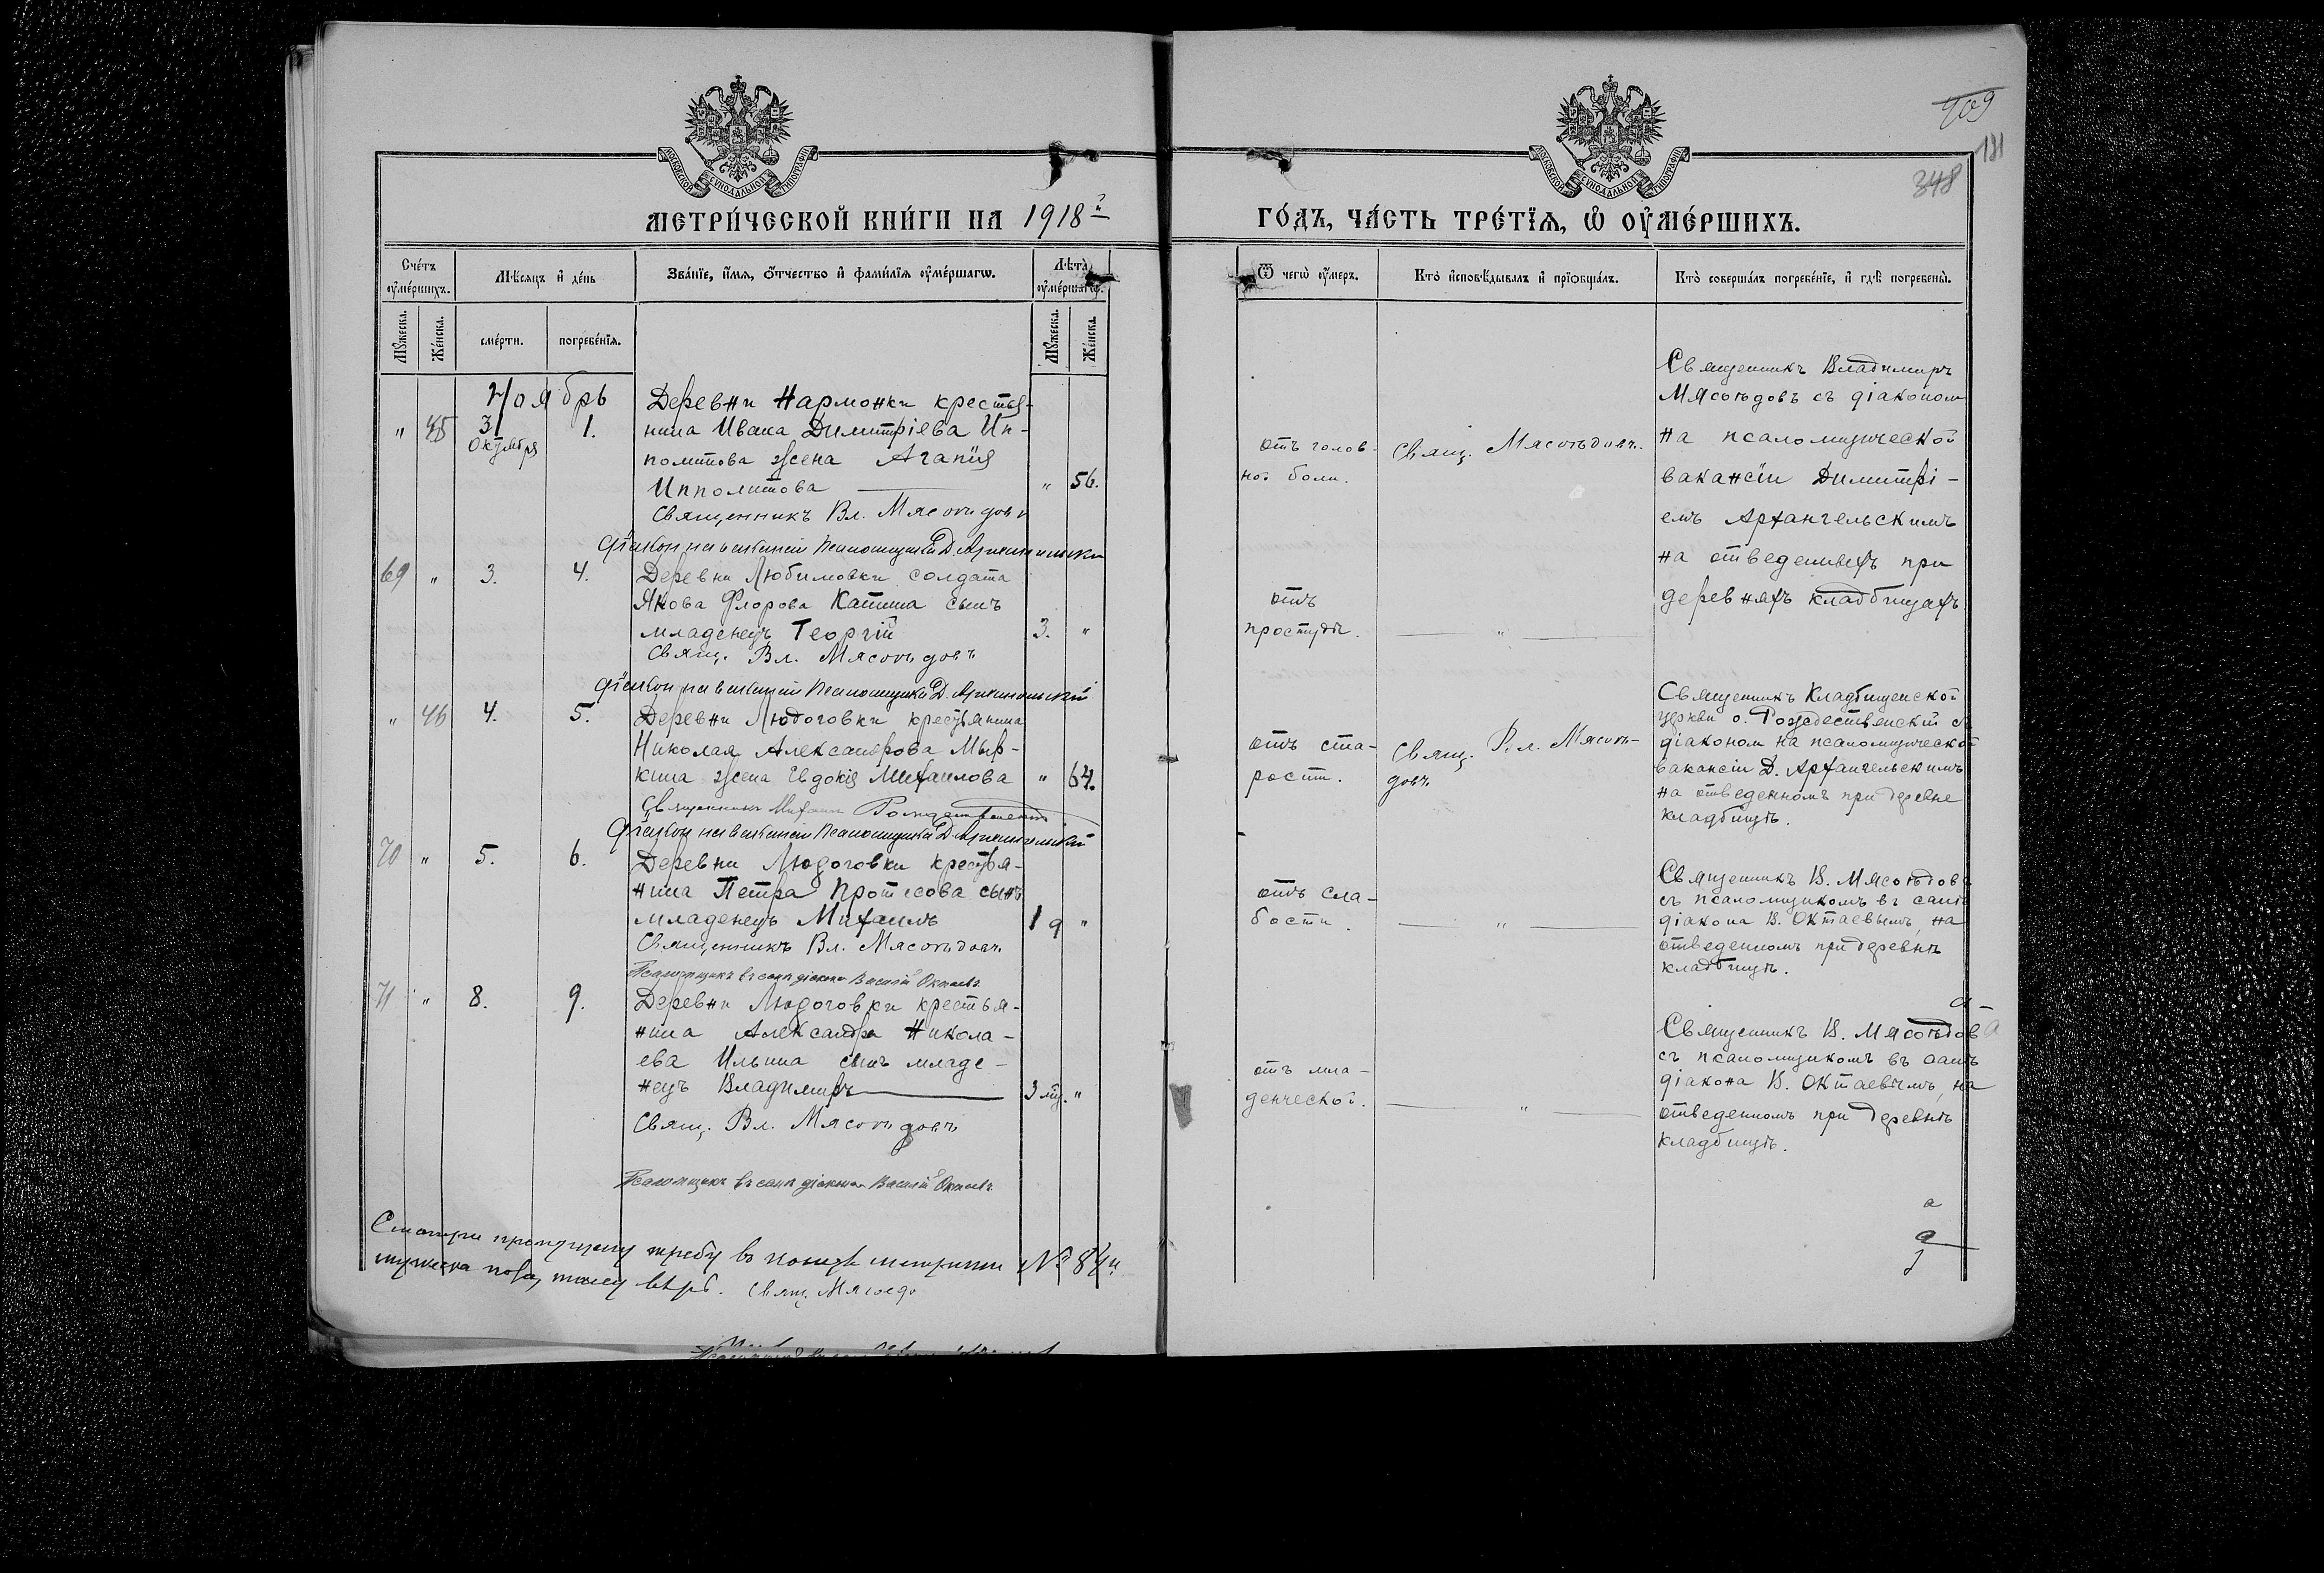 909
181
348
МОСКОВСКОЙ СѴНОДАЛЬНОЙ ТИПОГРАФИИ
МОСКОВСКОЙ СѴНОДАЛЬНОЙ ТИПОГРАФИИ
МЕТРИ́ЧЕСКОЙ КНИ́ГИ НА 1918й ГО́ДЪ, ЧА́СТЬ ТРЕ́ТЇѦ, Ѡ ОУМЕ́РШИХЪ.
Сче́тъ оуме́ршихъ.
Мѣ́сяцъ и де́нь
Зва́нїе, и́мя, о́тчество и фами́лїя оуме́ршагѡ.
Лѣта̀ оуме́ршагѡ.
Ѿ чегѡ̀ оу́меръ.
Кто̀ исповѣ́дывалъ и прїѻбща́лъ.
Кто̀ соверша́лъ погребе́нїе, и гдѣ̀ погребены̀.
Му́жеска.
Же́нска.
сме́рти.
погребе́нїѧ.
Му́жеска.
Же́нска.
Ноябрь
" 45 31 Октября 1.
Деревни Нармонки крестья-
нина Ивана Димитріева Ип-
политова жена Агапія
Ипполитова " 56.
Священникъ Вл. Мясоѣдовъ
Діаконъ на вакансіи псаломщика Д. Архангельскій
отъ голов-
ной боли.
Свящ. Мясоѣдовъ.
Священникъ Владимиръ
Мясоѣдовъ съ діакономъ
на псаломщической
вакансіи Димитрі-
емъ Архангельскимъ
на отведенныхъ при
деревняхъ кладбищахъ
69 " 3. 4.
Деревни Любимовки солдата
Якова Флорова Катина сынъ
младенецъ Георгій 3. "
Свящ. Вл. Мясоѣдовъ
Діаконъ на вакансіи псаломщика Д. Архангельскій
отъ
простуды.
"
" 46 4. 5.
Деревни Людоговки крестьянина
Николая Александрова Мыр-
кина жена Евдокія Михаилова " 64.
Священникъ Михаилъ Рождественскій
Діаконъ на вакансіи псаломщика Д. Архангельскій
отъ ста-
рости.
Свящ. Вл. Мясоѣ-
довъ
Священникъ Кладбищенской
церкви о. Рождественскій съ
діакономъ на псаломщической
вакансіи Д. Архангельскимъ
на отведенномъ при деревне
кладбищѣ.
70 " 5. 6.
Деревни Людоговки крестья-
нина Петра Протасова сынъ
младенецъ Михаилъ 1 9 "
Священникъ Вл. Мясоѣдовъ
Псаломщикъ въ санѣ діакона Василій Октаевъ
отъ сла-
бости.
"
Священникъ В. Мясоѣдовъ
съ псаломщикомъ въ санѣ
діакона В. Октаевымъ, на
отведенномъ при деревнѣ
кладбищѣ.
71 " 8. 9.
Деревни Людоговки крестья-
нина Александра Никола-
ева Ильина сынъ младе-
нецъ Владимиръ 3 мц. "
Свящ. Вл. Мясоѣдовъ
Псаломщикъ въ санѣ діакона Василій Октаевъ
отъ мла-
денческой.
"
Священникъ В. Мясоѣдовъ
съ псаломщикомъ въ санѣ
діакона В. Октаевымъ, на
отведенномъ при деревнѣ
кладбищѣ.
Смотри пропущену требу въ концѣ метрики № 84й
мужеска пола,
Свящ. Мясоедо